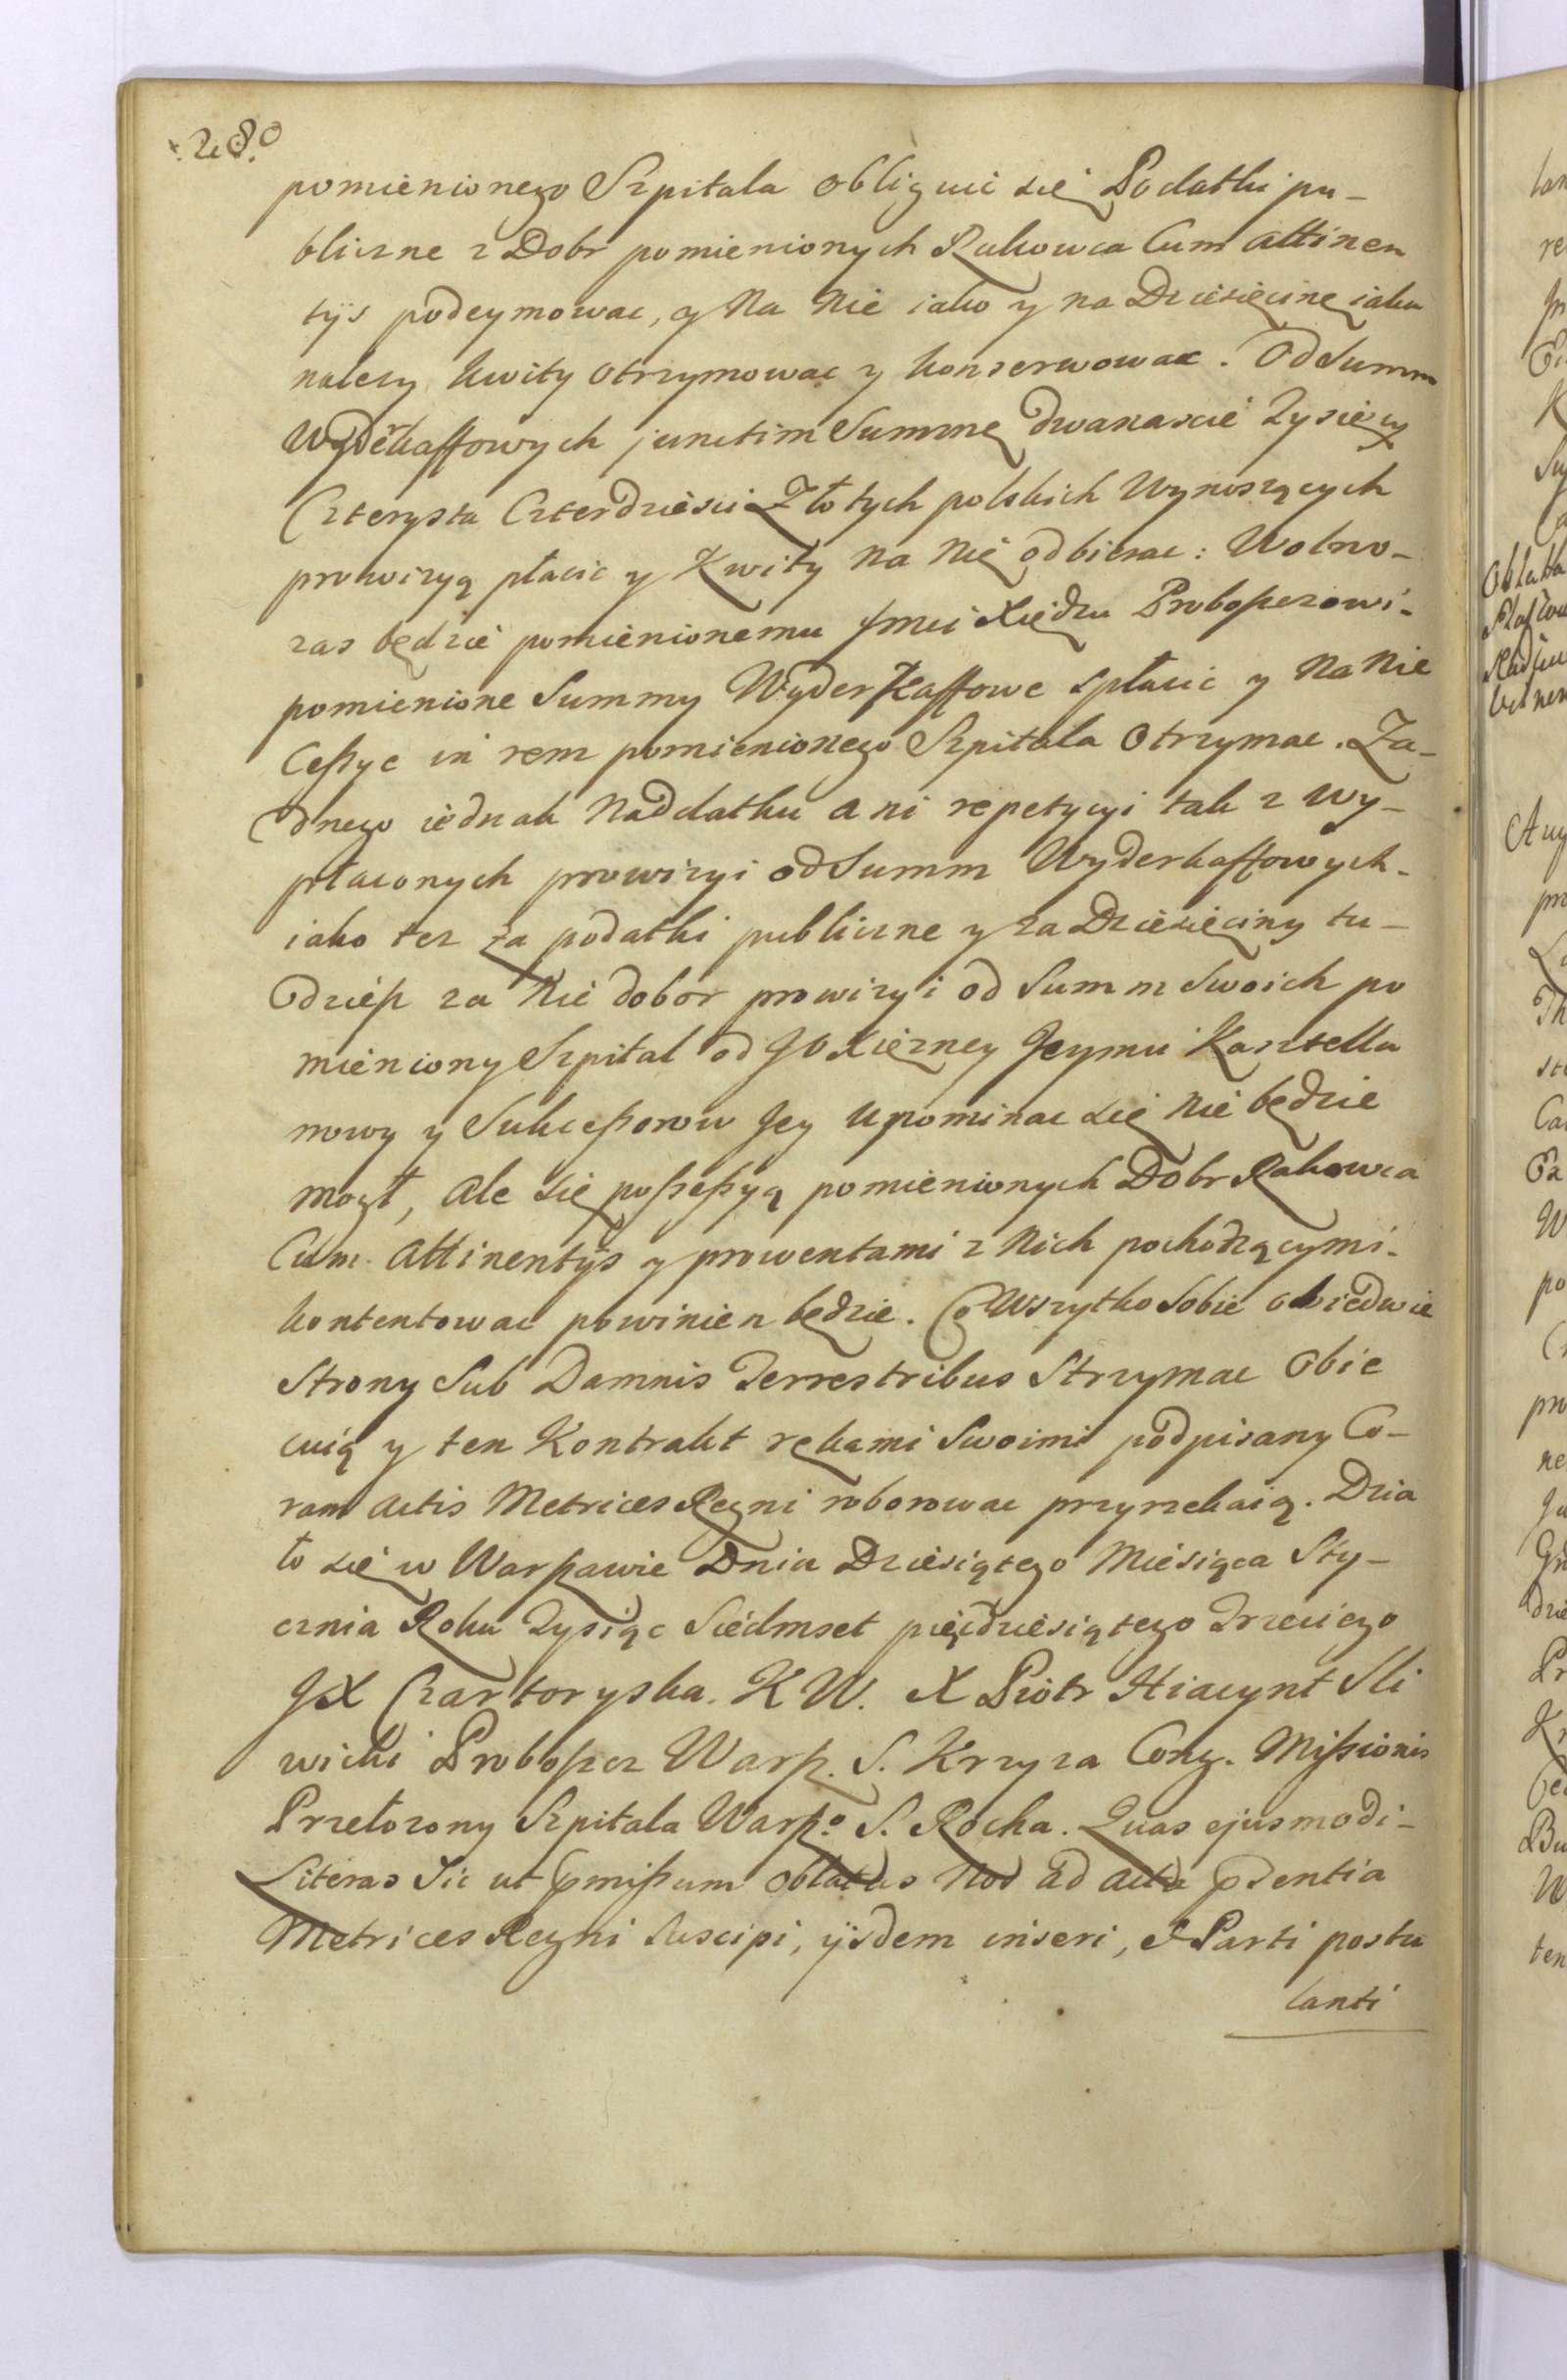 280
pomienionego Szpitala obliguie się Podatki pu-
bliczne z Dobr pomienionych Rakowca Cum attinen
tijs podeymowac, y Na Nie iako y na Dziesięcinę iako
nalezy kwity otrzymowac y konserwowac. Od Summ
Wyderkaffowych junctim Summę dwanascie Tysięcy
Czterysta Czterdziesci Złotych polskich Wynoszących
prowizyą płacic y Kwity na Nię odbierac: Wolno-
zas będzie pomienionemu Jmci Xiędzu Proboszczowi-
pomienione Summy Wyderkaffowe spłacic y Na Nie
Cessye in rem pomienionego Szpitala Otrzymac. Za-
dnego iednak Naddatku ani repetycyi tak z wy-
płaconych prowizyi od Summ Wyderkaffowych-
iako tez za podatki publiczne y za Dziesięciny tu-
dziesz za Nie dobor prowizyi od Summ Swoich po
mieniony Szpital od JO Xięzney Jeymci Kasztella
nowy y Sukcessorow Jey upominac się Nie będzie
mogł, ale się possessyą pomienionych Dobr Rakowca
Cum Attinentijs y prowentami z Nich pochodzącymi-
kontentowac powinien będzie. Co Wszytko Sobie obiedwie
Strony Sub Damnis Terrestribus Strzymac Obie
cuią y ten Kontrakt rękami Swoimi podpisany Co-
ram Actis Metrices Regni roborowac przyrzekaią. Dzia
ło się w Warszawie Dnia Dziesiątego Miesiąca Sty-
cznia Roku Tysiąc Siedmset pięcdziesiątego Trzeciego
JX Czartoryska. K W. X Piotr Hiacynt Sli
wicki Proboszcz Warsz. S. Krzyza Cong. Missionis
Przełozony Szpitala Warszo S. Rocha. Quas ejusmodi-
Literas Sic ut pmissum oblatas Nos ad acta psentia
Metrices Regni Suscipi, ijsdem inseri, et Parti postu
lanti
Oblata